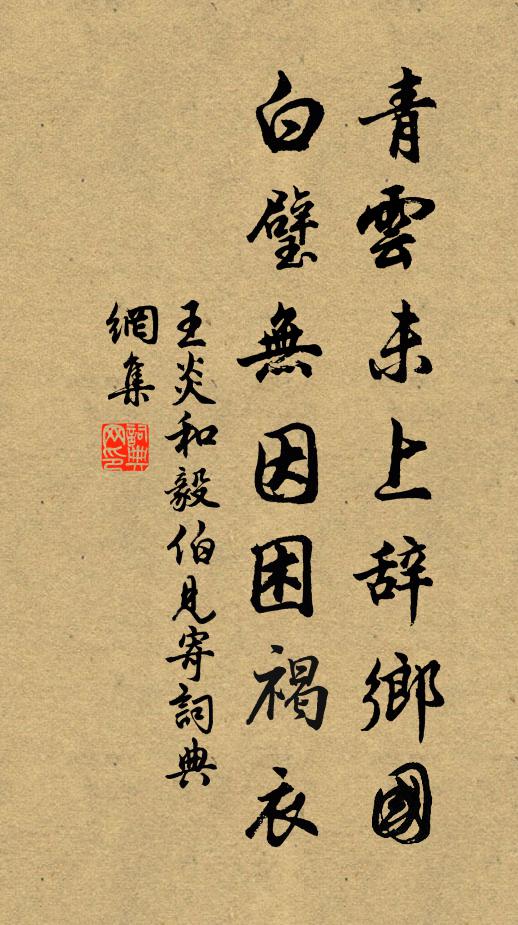 青雲未上辞鄉國
白璧無因困褐衣
王炎和毅伯見寄詞典
網集
詞典網印